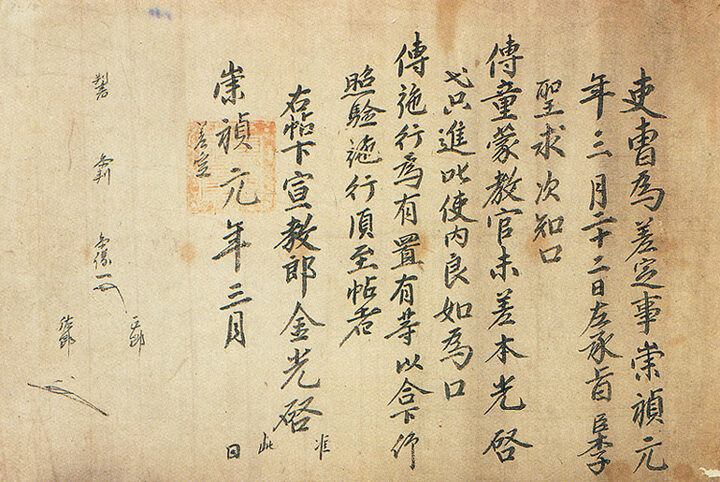 吏曹爲差定事崇禎元
年三月二十二日左承旨臣李
聖求次知口
傳童蒙教官未差本光啓
弋只進叱使內良如爲口
傳施行爲有置有等以合下仰
照驗施行須至帖者
右帖下宣教郎金光啓
准此
崇禎元年三月 日
差定
參判
參議
正郎
佐郎